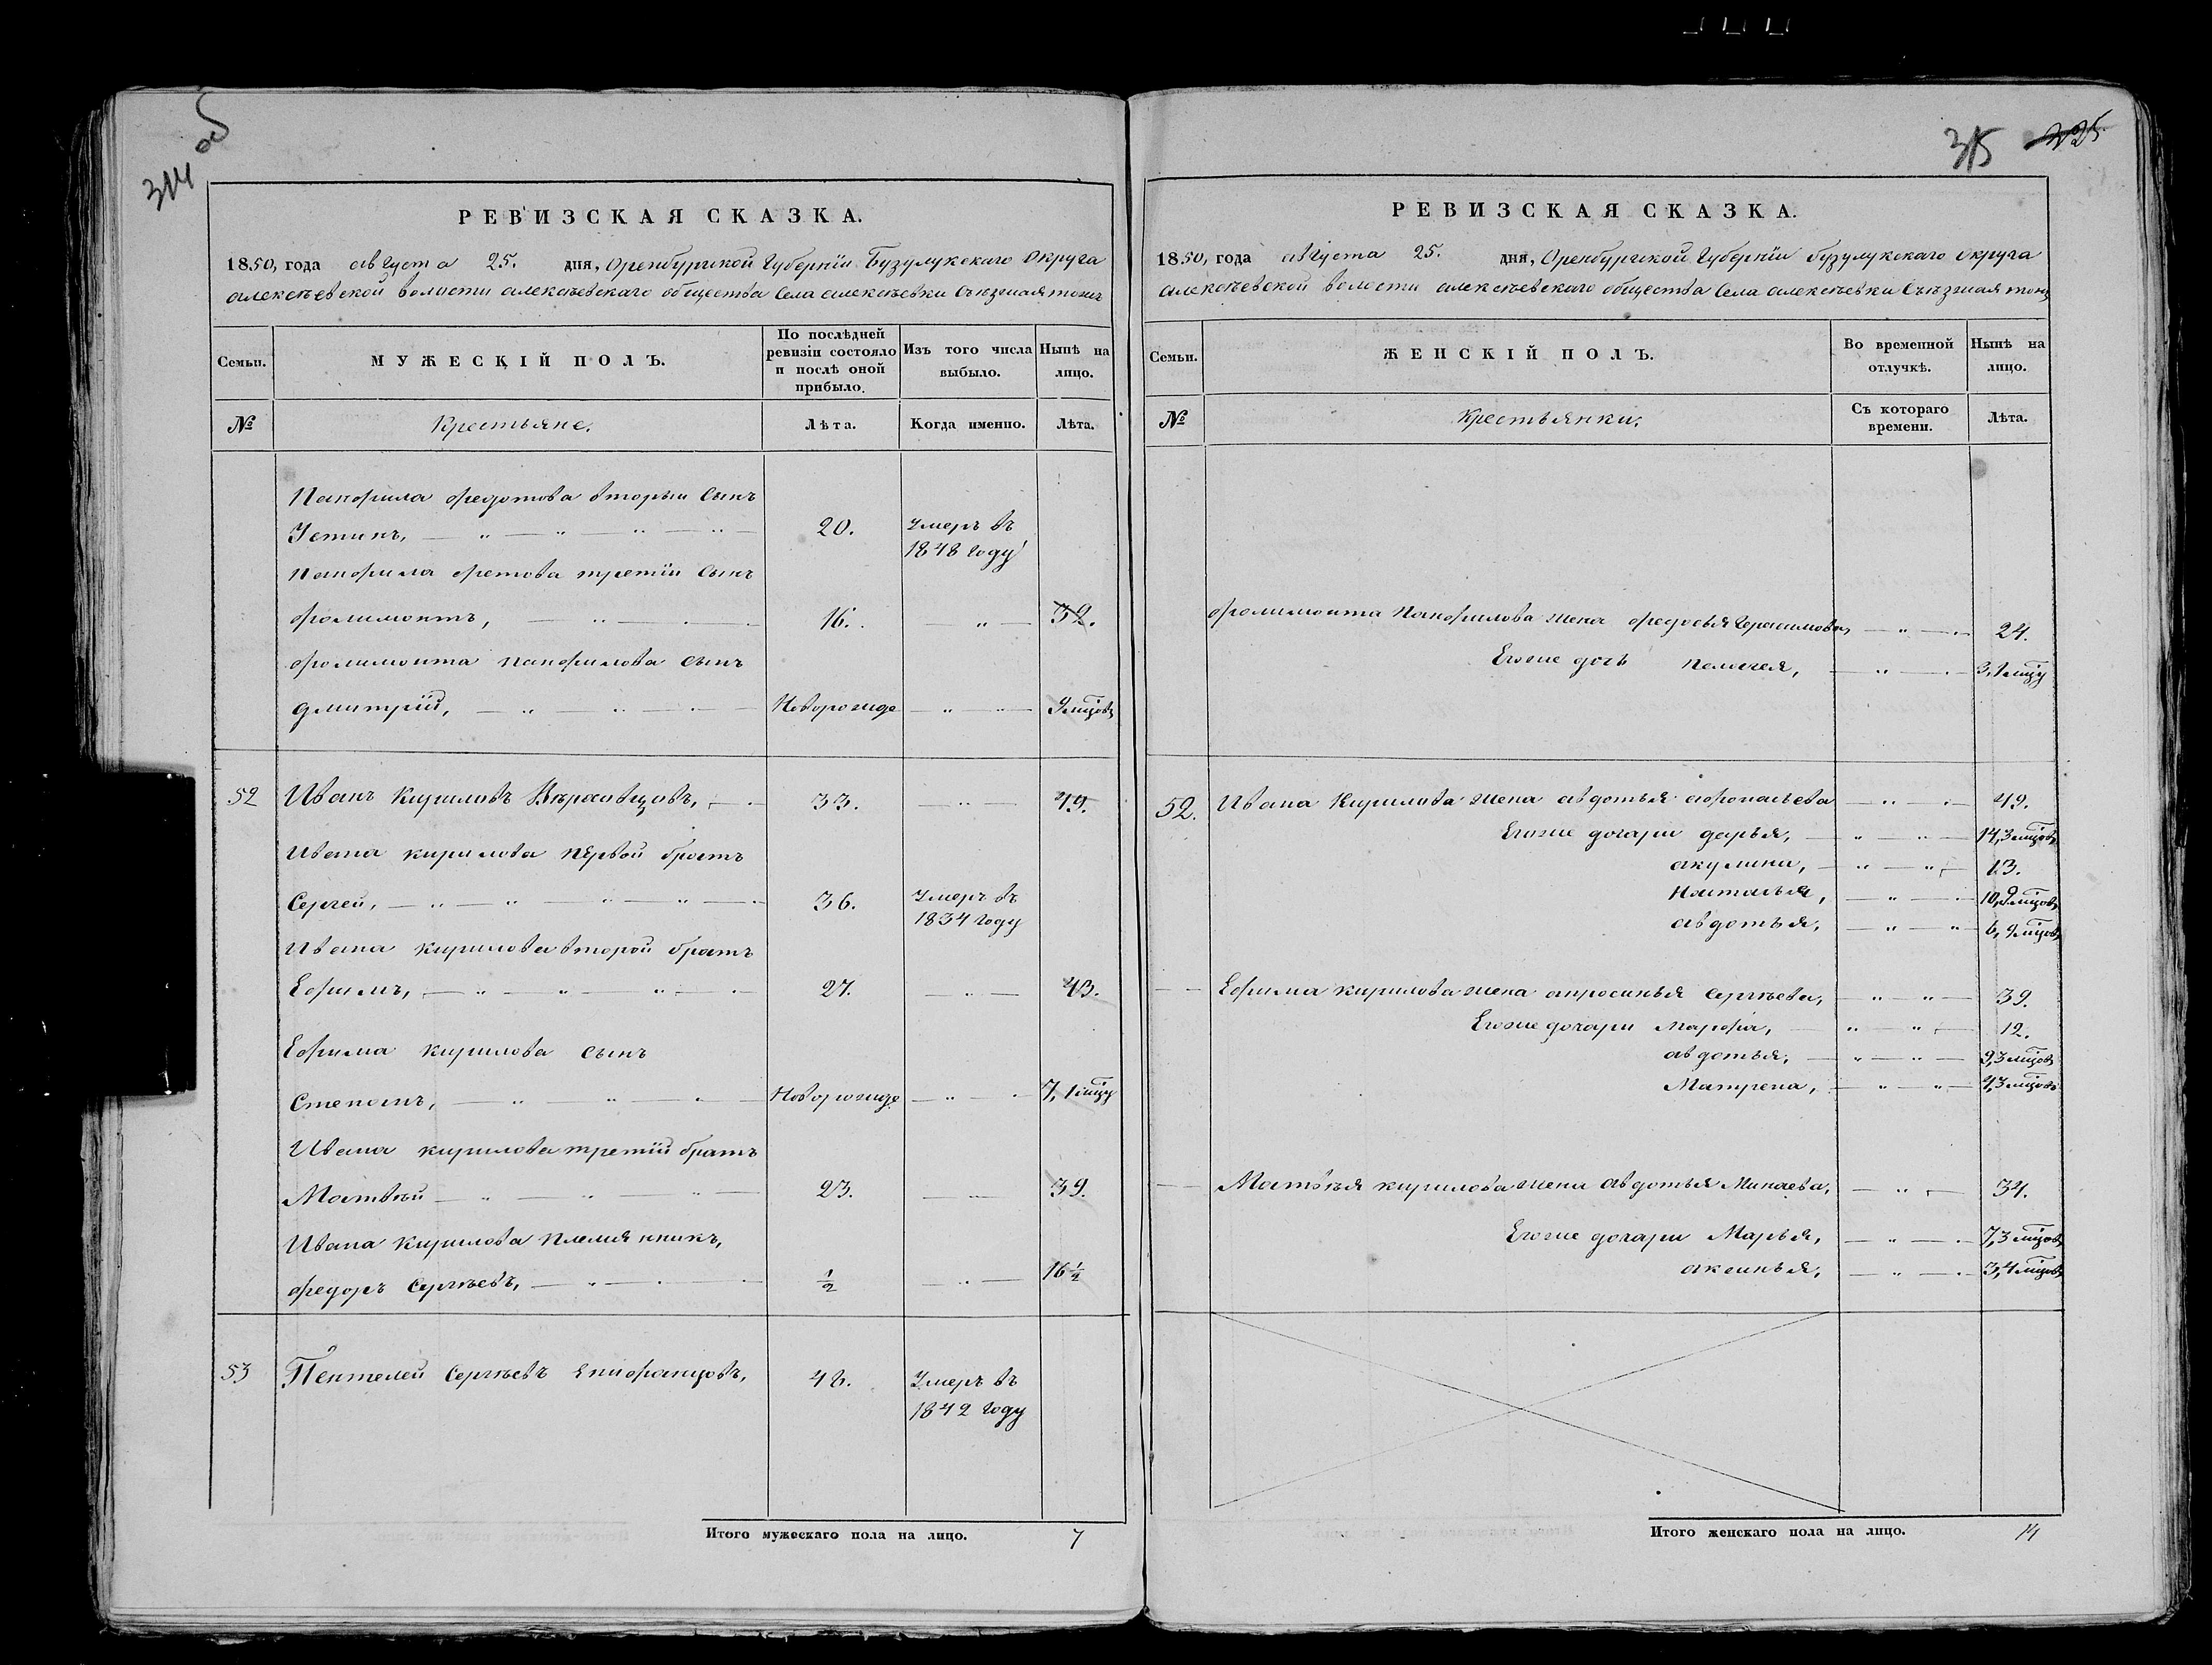 314 об
РЕВИЗСКАЯ СКАЗКА.
1850, года августа 25. дня, Оренбургской Губернiи Бузулукскаго Округа
алексѣевской волости алексѣевскаго общества Села алексѣевки Съѣзжая тожъ
Семьи.
МУЖЕСКIЙ ПОЛЪ.
По послѣдней ревизiи состояло и послѣ оной прибыло.
Изъ того числа выбыло.
Нынѣ на лицо.
№
Крестьяне.
Лѣта.
Когда именно.
Лѣта.
Панфила федотова вторыи Сынъ
Устинъ, 20. Умеръ въ
1848 году
Панфила фетова третiи Сынъ
филимонтъ, 16. 32.
филимонта панфилова сынъ
дмитрiй, Новорожде 9 мцовъ
52 Иванъ Кириловъ 33. 49.
Ивана кирилова первой братъ
Сергей, 36. Умеръ въ
1834 году
Ивана кирилова второй братъ
Ефимъ, 27. 43.
Ефима кирилова сынъ
Степанъ, Новорожде 7, 1 мцу
Ивана кирилова третiй братъ
Матвѣй 23. 39.
Ивана Кирилова племянникъ,
федоръ Сергѣевъ, ½ 16 ½
53 Пентелей Сергѣевъ Епифанцовъ, 46. Умеръ въ
1842 году
Итого мужескаго пола на лицо. 7
315 325
РЕВИЗСКАЯ СКАЗКА.
1850, года августа 25. дня, Оренбургской Губернiи бузулукскаго округа
алексѣевской волости алексѣевскаго общества Села алексѣевки Съѣзжая тожъ
Семьи.
ЖЕНСКIЙ ПОЛЪ.
Во временной отлучкѣ.
Нынѣ на лицо.
№
Крестьянки.
Съ котораго времени.
Лѣта.
филимонта Панфилова жена федосья Герасимова, 24.
Егоже дочь пелагея, 3, 1 мцу
52. Ивана Кирилова жена авдотья афонасьева 49.
Егоже дочари дарья, 14, 3 мцовъ
акулина, 13.
Наталья, 10, 9 мцовъ
авдотья, 6, 9 мцовъ
Ефима кирилова жена апросинья Сергѣева, 39.
Егоже дочари Марфа, 12.
авдотья, 9, 3 мцовъ
Матрена, 4, 3 мцовъ
Матвѣя кирилова жена авдотья Минаева, 34.
Егоже дочари Марья, 7, 3 мцовъ
аксинья, 3, 4 мцовъ
Итого женскаго пола на лицо. 14